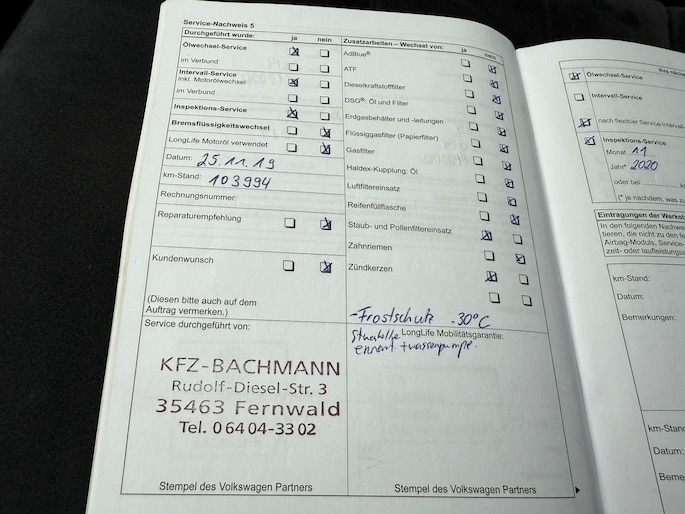 Service-Nachweis 5
Durchgeführt wurde: ja nein
Ölwechsel-Service
im Verbund
Intervall-Service
inkl. Motorölwechsel
im Verbund
Inspektions-Service
Bremsflüssigkeitswechsel
LongLife Motoröl verwendet
Datum: 25.11.19
km-Stand: 103994
Rechnungsnummer:
Reparaturempfehlung
Kundenwunsch
(Diesen bitte auch auf dem
Auftrag vermerken.)
Service durchgeführt von:
KFZ-BACHMANN
Rudolf-Diesel-Str. 3
35463 Fernwald
Tel. 0 64 04-33 02
Stempel des Volkswagen Partners
Zusatzarbeiten – Wechsel von: ja nein
AdBlue®
ATF
Dieselkraftstofffilter
DSG®: Öl und Filter
Erdgasbehälter und -leitungen
Flüssiggasfilter (Papierfilter)
Gasfilter
Haldex-Kupplung: Öl
Luftfiltereinsatz
Reifenfüllflasche
Staub- und Pollenfiltereinsatz
Zahnriemen
Zündkerzen
-Frostschutz -30°C
LongLife Mobilitätsgarantie:
Stempel des Volkswagen Partners
Ölwechsel-Service
Intervall-Service
nach flexibler Service-Interval
Inspektions-Service
Monat 11
Jahr* 2020
oder bei
(* je nachdem, was zu
Eintragungen der Werkst
In den folgenden Nachwei
tieren, die nicht zu den fe
Airbag-Moduls, Service-
zeit- oder laufleistungs
km-Stand:
Datum:
Bemerkungen:
km-Stand
Datum:
Beme